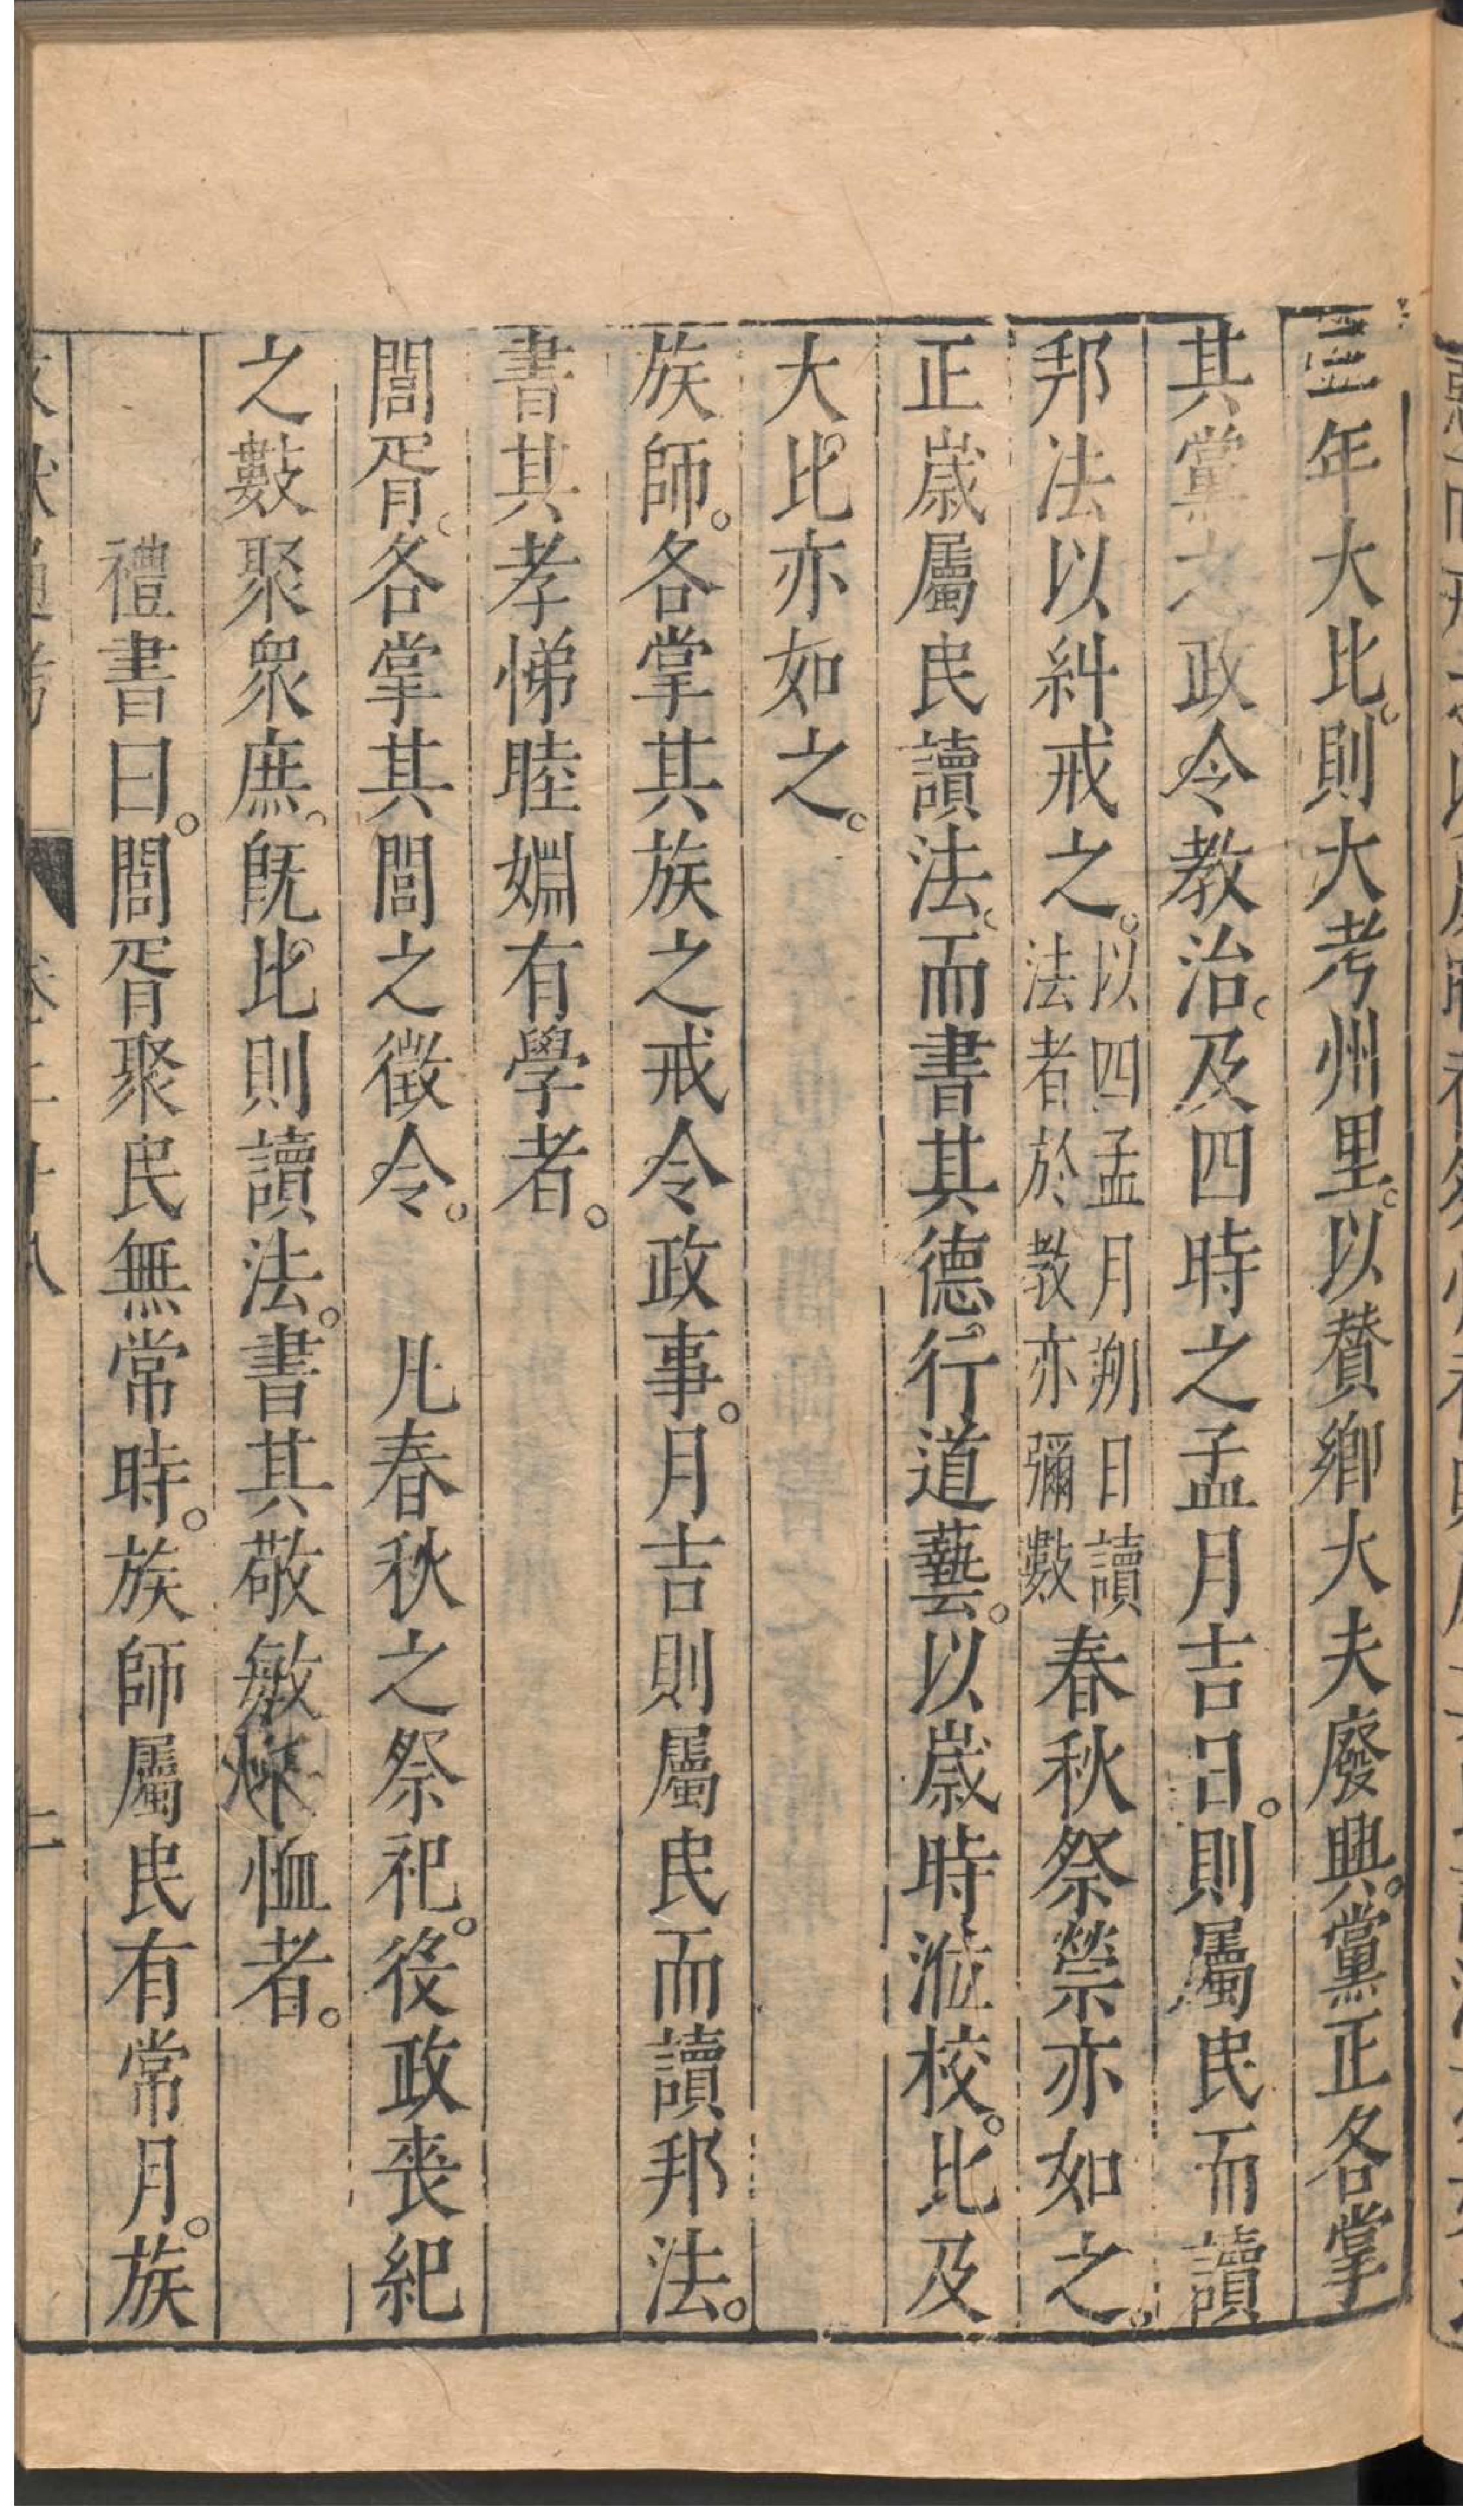 三年大比。則大考州里。以賛鄉大夫廢興。黨正各掌
其黨之政令教治。及四時之孟月吉日。則屬民而讀
邦法以糾戒之。以四孟月朔日讀法者於教亦彌數春秋祭禜亦如之。
正歲屬民讀法。而書其德。行道藝。以歲時涖校。比及
大比。亦如之。
族師。各掌其族之戒令政事。月吉則屬民而讀邦法。
書其孝悌睦婣有學者。
閭胥。各掌其閭之徵令。 凡春秋之祭祀。役政喪紀
之數聚衆庶。旣比。則讀法。書其敬敏恤者。
禮書曰。閭胥聚民無常時。族師屬民有常月。族